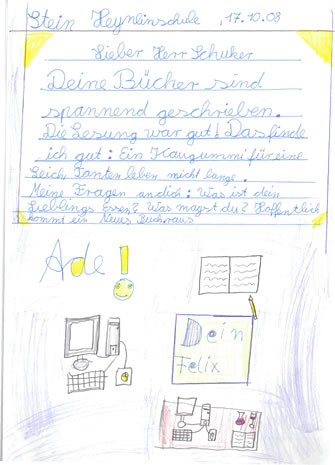 Stein Heynlinschule, 17.10.08
Lieber Herr Schuker
Deine Bücher sind
spannend geschrieben.
Die Lesung war gut! Das finde
ich gut: Ein Kaugummi für eine
Leich Tanten leben nicht lange.
Meine Fragen an dich: Was ist dein
Lieblings Essen? Was magst du? Hoffentlich
kommt ein Neues Buch raus
Ade!
Dein
Felix